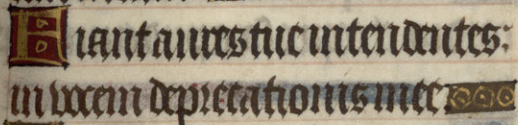 Fiant aures tue intendentes:
in vocem deprecationis mee